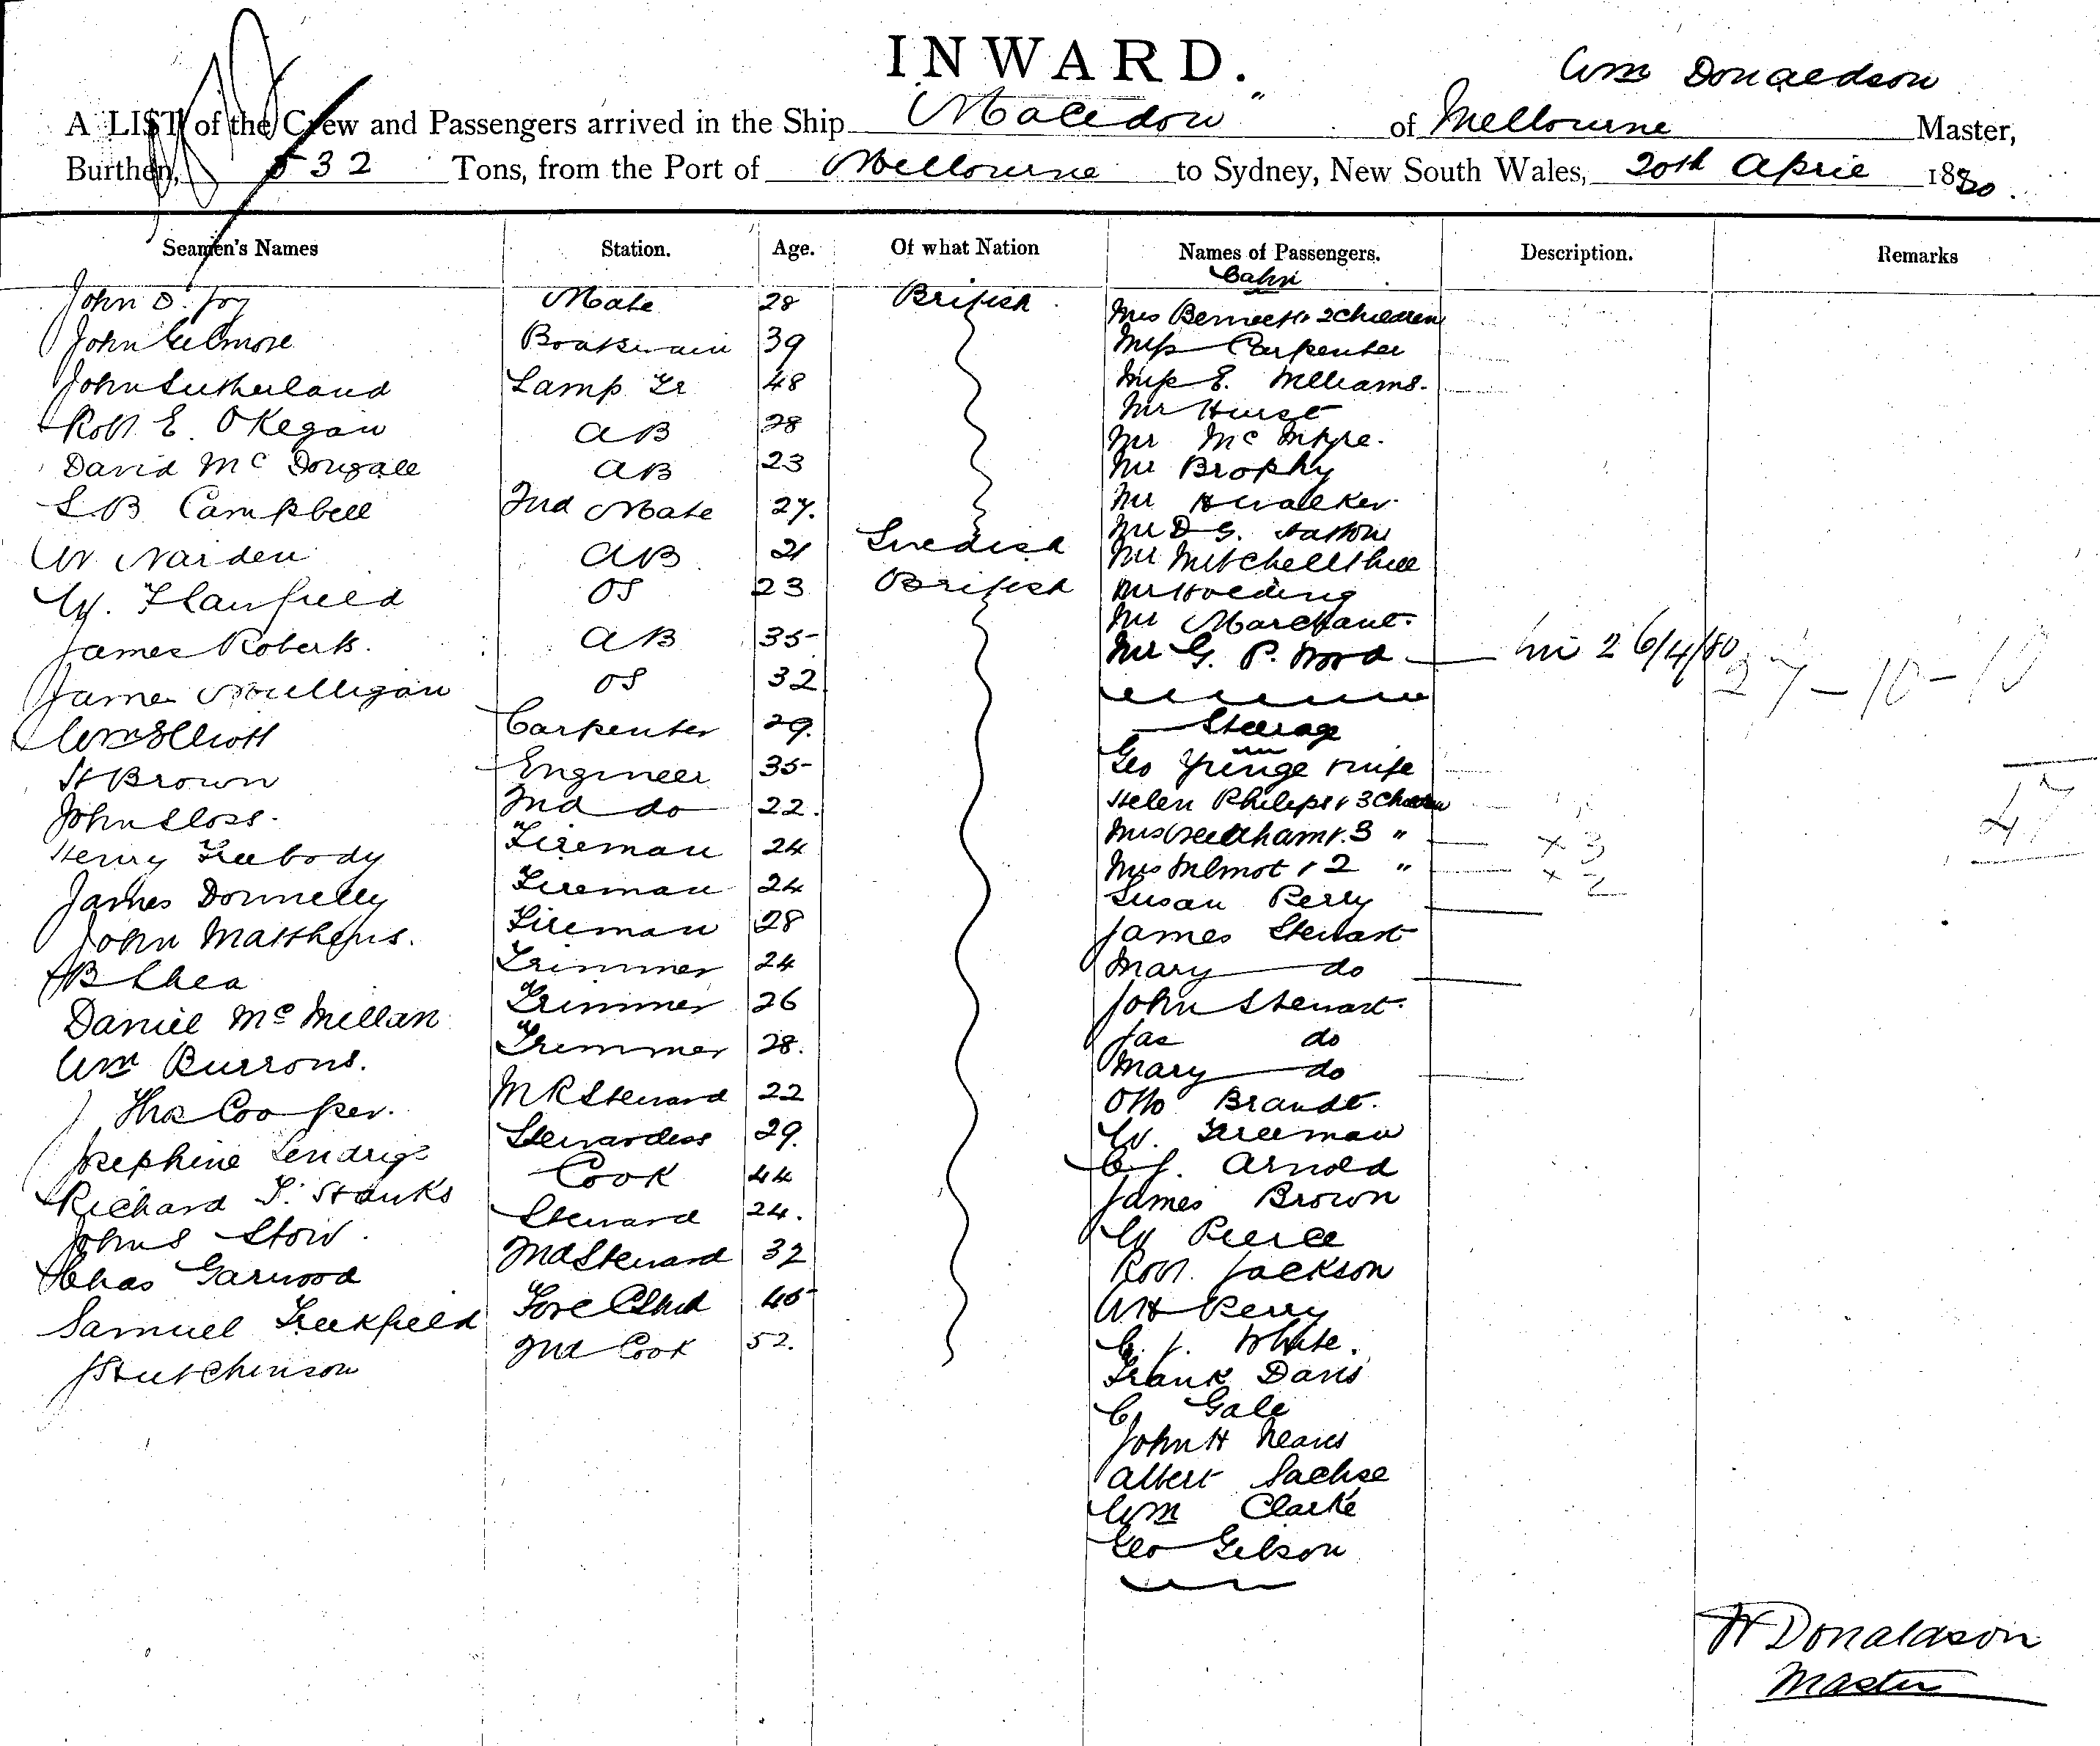 INWARD.
Wm Donaldson
A LIST of the Crew and Passengers arrived in the Ship "Macedon" of Melbourne Master,
Burthen, 532 Tons, from the Port of Melbourne to Sydney, New South Wales, 20th April 1880.
Seamen's Names Station. Age. Of what Nation Names of Passengers. Description. Remarks
Cabin
John D. Joy Mate 28 British Mrs Bennett + 2 Children
John Gilmore Boatswain 39 Miss Carpenter
John Sutherland Lamp Tr 48 Miss E. Williams.
Mr Hurst
Robt E. OKegan AB 28 Mr McIntyre.
David McDougall AB 23 Mr Brophy
S B Campbell 2nd Mate 27. Mr H Walker.
Mr D G.
W Narden AB 21 Swedish Mr Mitchellhill
W. Flanfield OS 23 British Mr Holding
Mr Marchant.
James Roberts. AB 35 Mr G. P. Wood 26/4/80
James Mulligan OS 32 27-10-10
Wm Elliott Carpenter 29. Steerage
H Brown Engineer 35 Geo + wife
John Sloss. 2nd do 22. Helen Philips + 3 Children 47
Henry Freebody Fireman 24 Mrs Needham + 3 " + 3
James Donnelly Fireman 24 Mrs Wilmot + 2 " + 2
Susan Perry
John Matthews. Fireman 28 James Stewart
B Shea Trimmer 24 Mary do
Daniel McMillan Trimmer 26 John Stewart.
Wm Burrows. Trimmer 28. Jas do
Mary do
Thos Cooper. M R Steward 22 Otto Brandt.
Josephine Stewardess 29. W. Freeman
Richard T. Hanks Cook 44 C J. Arnold
James Brown
John S Stow. Steward 24. W Pierce
Chas Garwood 2nd Steward 32 Robt. Jackson
Samuel Freckfield Fore C Stwd 45 W H Perry
J Hutchinson 2nd Cook 52. C. J. White.
Frank Davis
C. Gale
John H Neaves
Albert Sachse
Wm Clarke
Geo Gibson
W Donaldson
Master